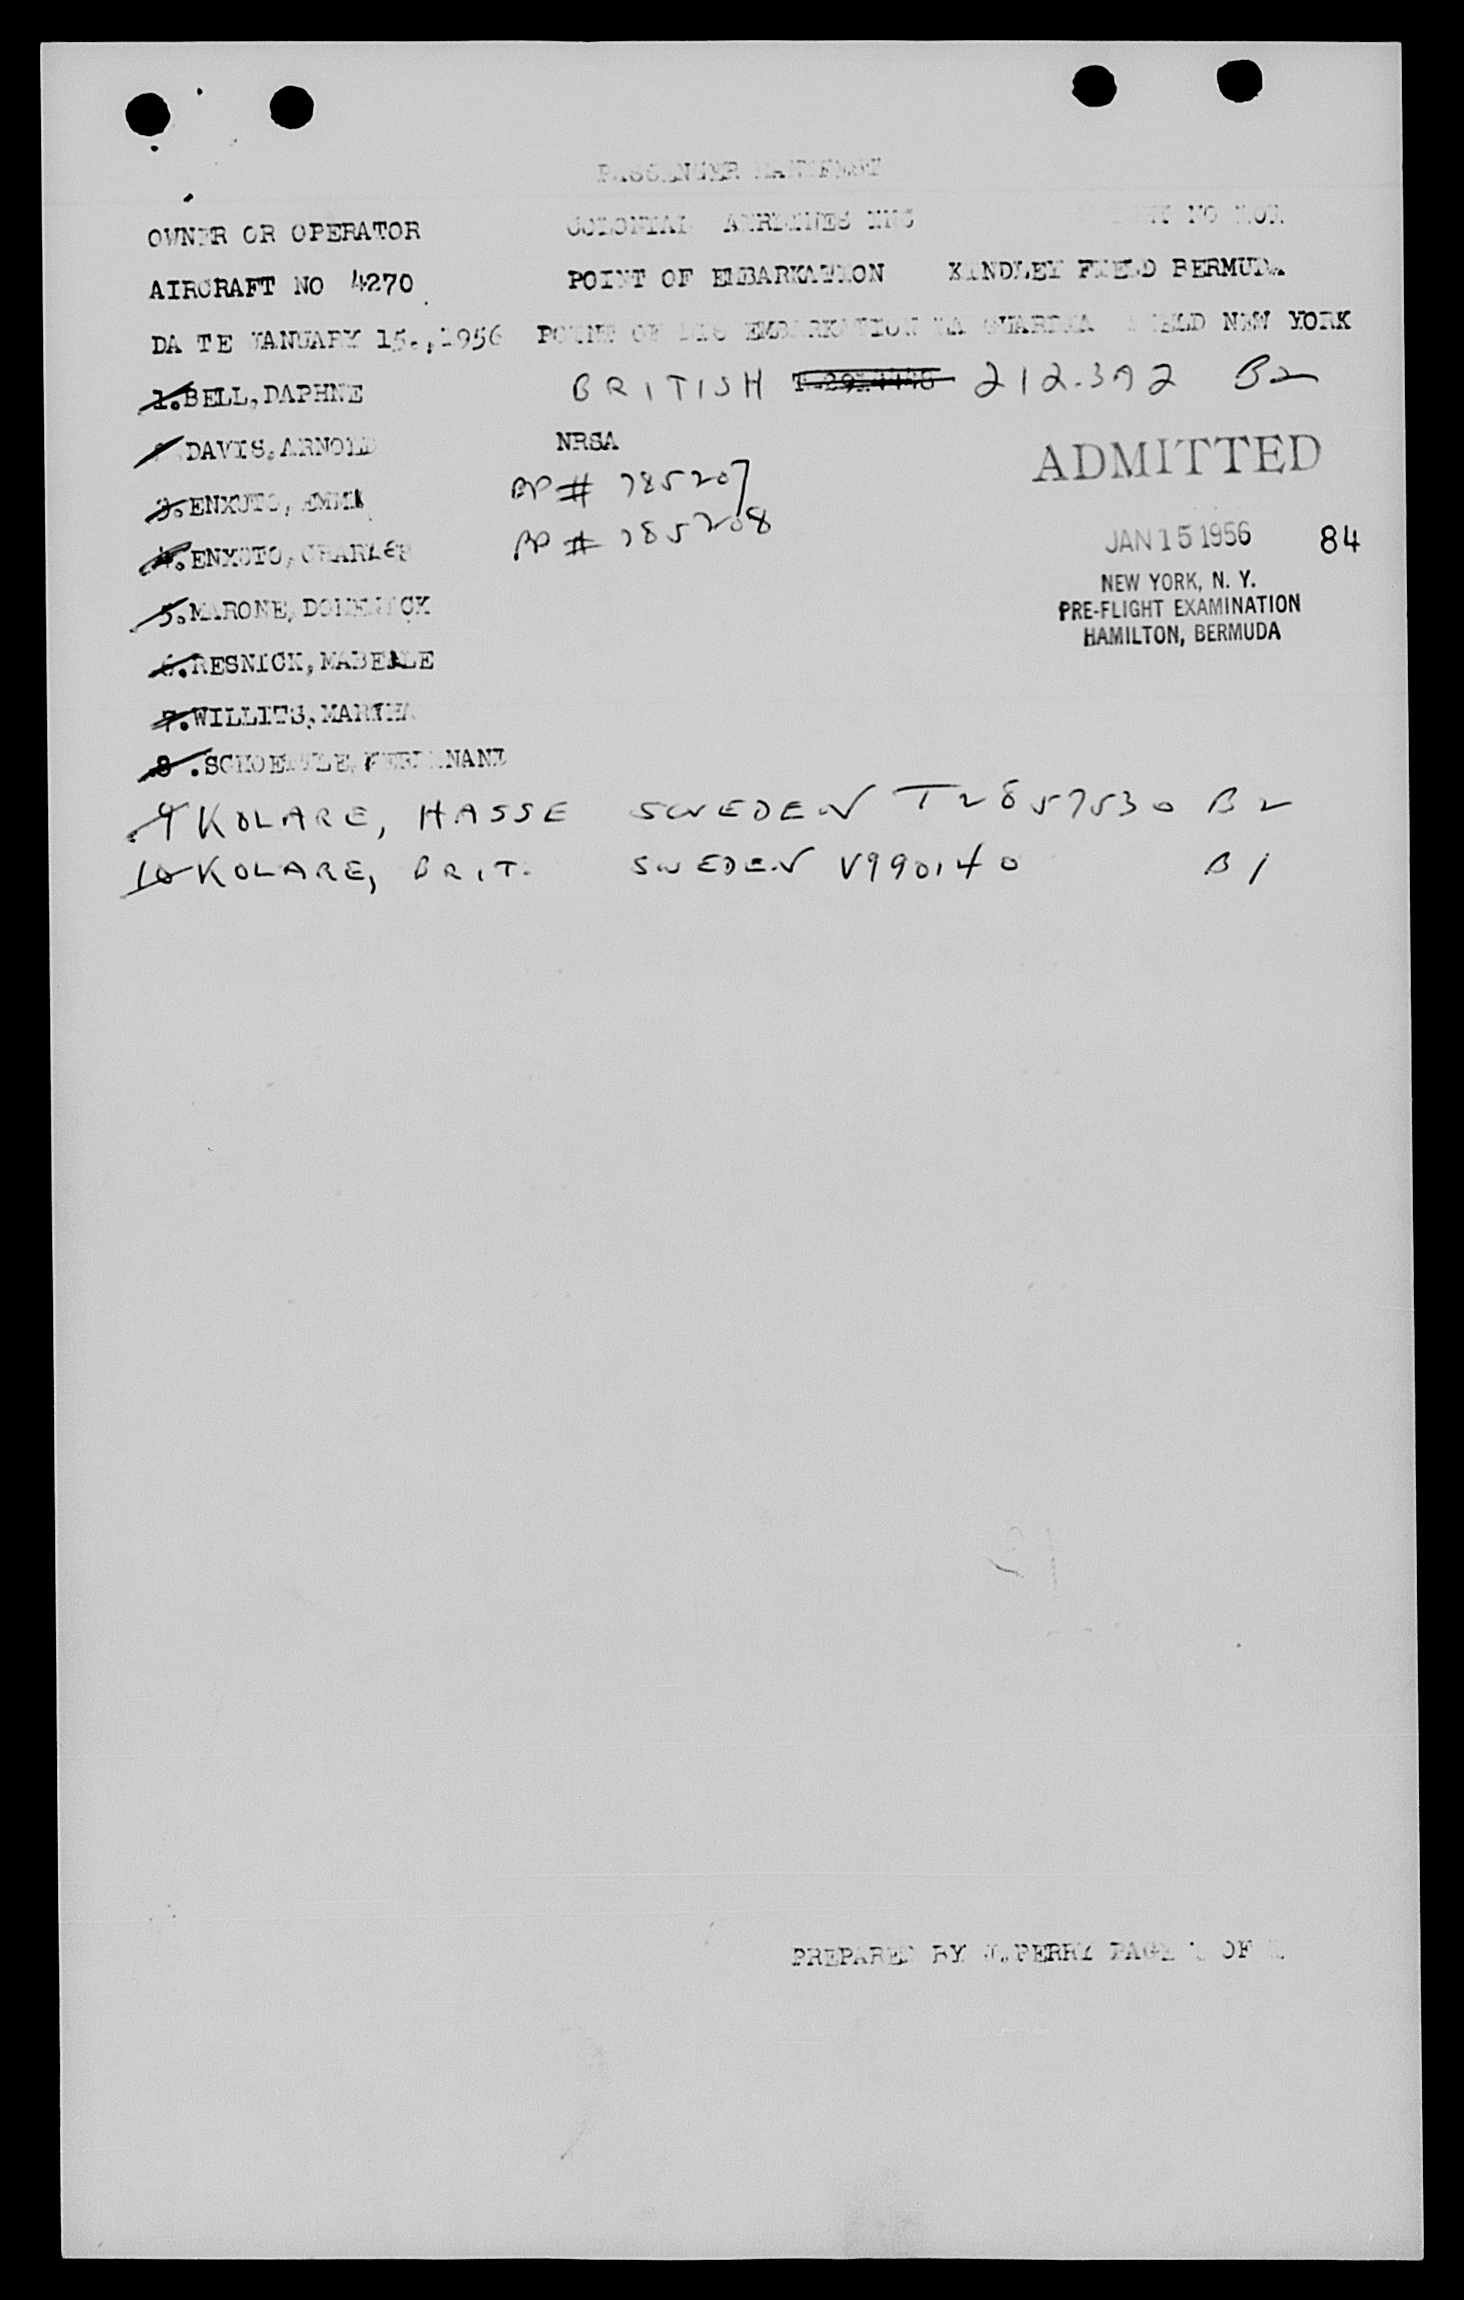 PASSENGER MANIFEST
OWNER OR OPERATOR COLONIAL AIRLINES INC NO
AIRCRAFT NO 4270 POINT OF EMBARKATION KINDLEY FIELD BERMUDA
DA TE JANUARY 15.,1956 POINT OF DIS EMBARKATION LA GUARDIA FIELD NEW YORK
1.BELL,DAPHNE BRITISH 212.392 B2
2.DAVIS,ARNOLD NRSA
ADMITTED
3.ENXUTO, EMMA BP # 785207
4.ENXUTO, CHARLES BP # 785208
JAN 15 1956 84
NEW YORK, N. Y.
PRE-FLIGHT EXAMINATION
HAMILTON, BERMUDA
5.MARONE, DOMENICK
6.RESNICK, MABELLE
7.WILLITS, MARTHA
8 . FERDINAND
9 KOLARE, HASSE SWEDEN T2857530 B2
10 KOLARE, BRIT. SWEDEN V990140 B1
PREPARED BY PERRY PAGE 1 OF